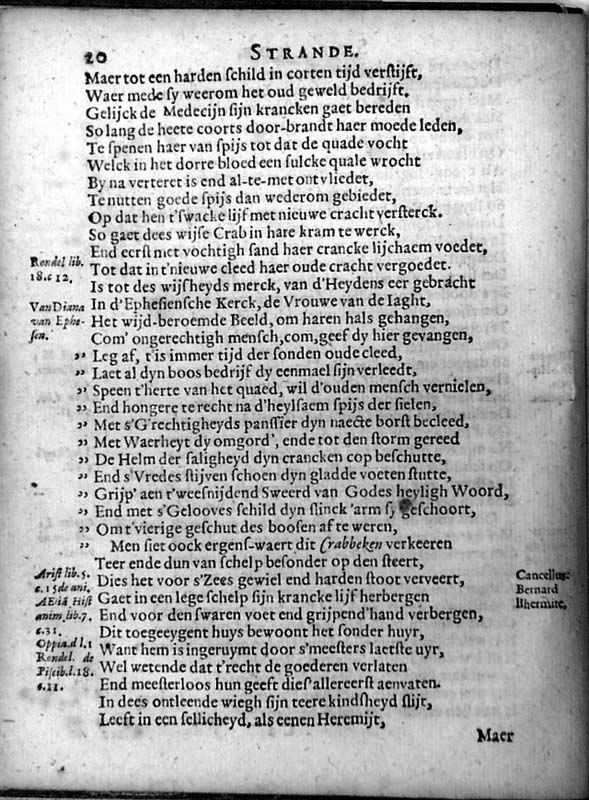 20 STRANDE.
Maer tot een harden schild in corten tijd verstijft,
Waer mede sy weerom het oud geweld bedrijft.
Gelijck de Medecijn sijn krancken gaet bereden
So lang de heete coorts door-brandt haer moede leden,
Te spenen haer van spijs tot dat de quade vocht
Welck in het dorre bloed een sulcke quale wrocht
By na verteret is end al-te-met ontvliedet,
Te nutten goede spijs dan wederom gebiedet,
Op dat hen t'swacke lijf met nieuwe cracht versterck.
So gaet dees wijse Crab in hare kram te werck,
End eerst met vochtigh sand haer crancke lijchaem voedet,
Rondel lib.
18. c 12.
Tot dat in t'nieuwe cleed haer oude cracht vergoedet.
Is tot des wijsheyds merck, van d'Heydens eer gebracht
Van Diana
van Ephe-
sen.
In d'Ephesiensche Kerck, de Vrouwe van de Iaght,
Het wijd-beroemde Beeld, om haren hals gehangen,
Com' ongerechtigh mensch, com, geef dy hier gevangen,
,, Leg af, t'is immer tijd der sonden oude cleed,
,, Laet al dyn boos bedrijf dy eenmael sijn verleedt,
,, Speen t'herte van het quaed, wil d'ouden mensch vernielen,
,, End hongere te recht na d'heylsaem spijs der sielen,
,, Met s'Grechtigheyds panssier dyn naecte borst becleed,
,, Met Waerheyt dy omgord', ende tot den storm gereed
,, De Helm der saligheyd dyn crancken cop beschutte,
,, End s'Vredes stijven schoen dyn gladde voeten stutte,
,, Grijp' aen t'weesnijdend Sweerd van Godes heyligh Woord,
,, End met s'Gelooves schild dyn slinck'arm sy geschoort,
,, Om t'vierige geschut des boosen af te weren,
,, Men siet oock ergens-waert dit Crabbeken verkeeren
Teer ende dun van schelp besonder op den steert,
Arist lib. 5.
c. 15 de ani.
AElia Hist
anim. lib. 7.
c. 31.
Oppia. d l. 1
Rondel. de
Piscib. l. 18.
c. 12.
Dies het voor s'Zees gewiel end harden stoot verveert,
Cancellus:
Bernard
l'hermite,
Gaet in een lege schelp sijn krancke lijf herbergen
End voor den swaren voet end grijpend'hand verbergen,
Dit toegeeygent huys bewoont het sonder huyr,
Want hem is ingeruymt door s'meesters laetste uyr,
Wel wetende dat t'recht de goederen verlaten
End meesterloos hun geeft dies allereerst aenvaten.
In dees ontleende wiegh sijn teere kindsheyd slijt,
Leeft in een sellicheyd, als eenen Heremijt,
Maer